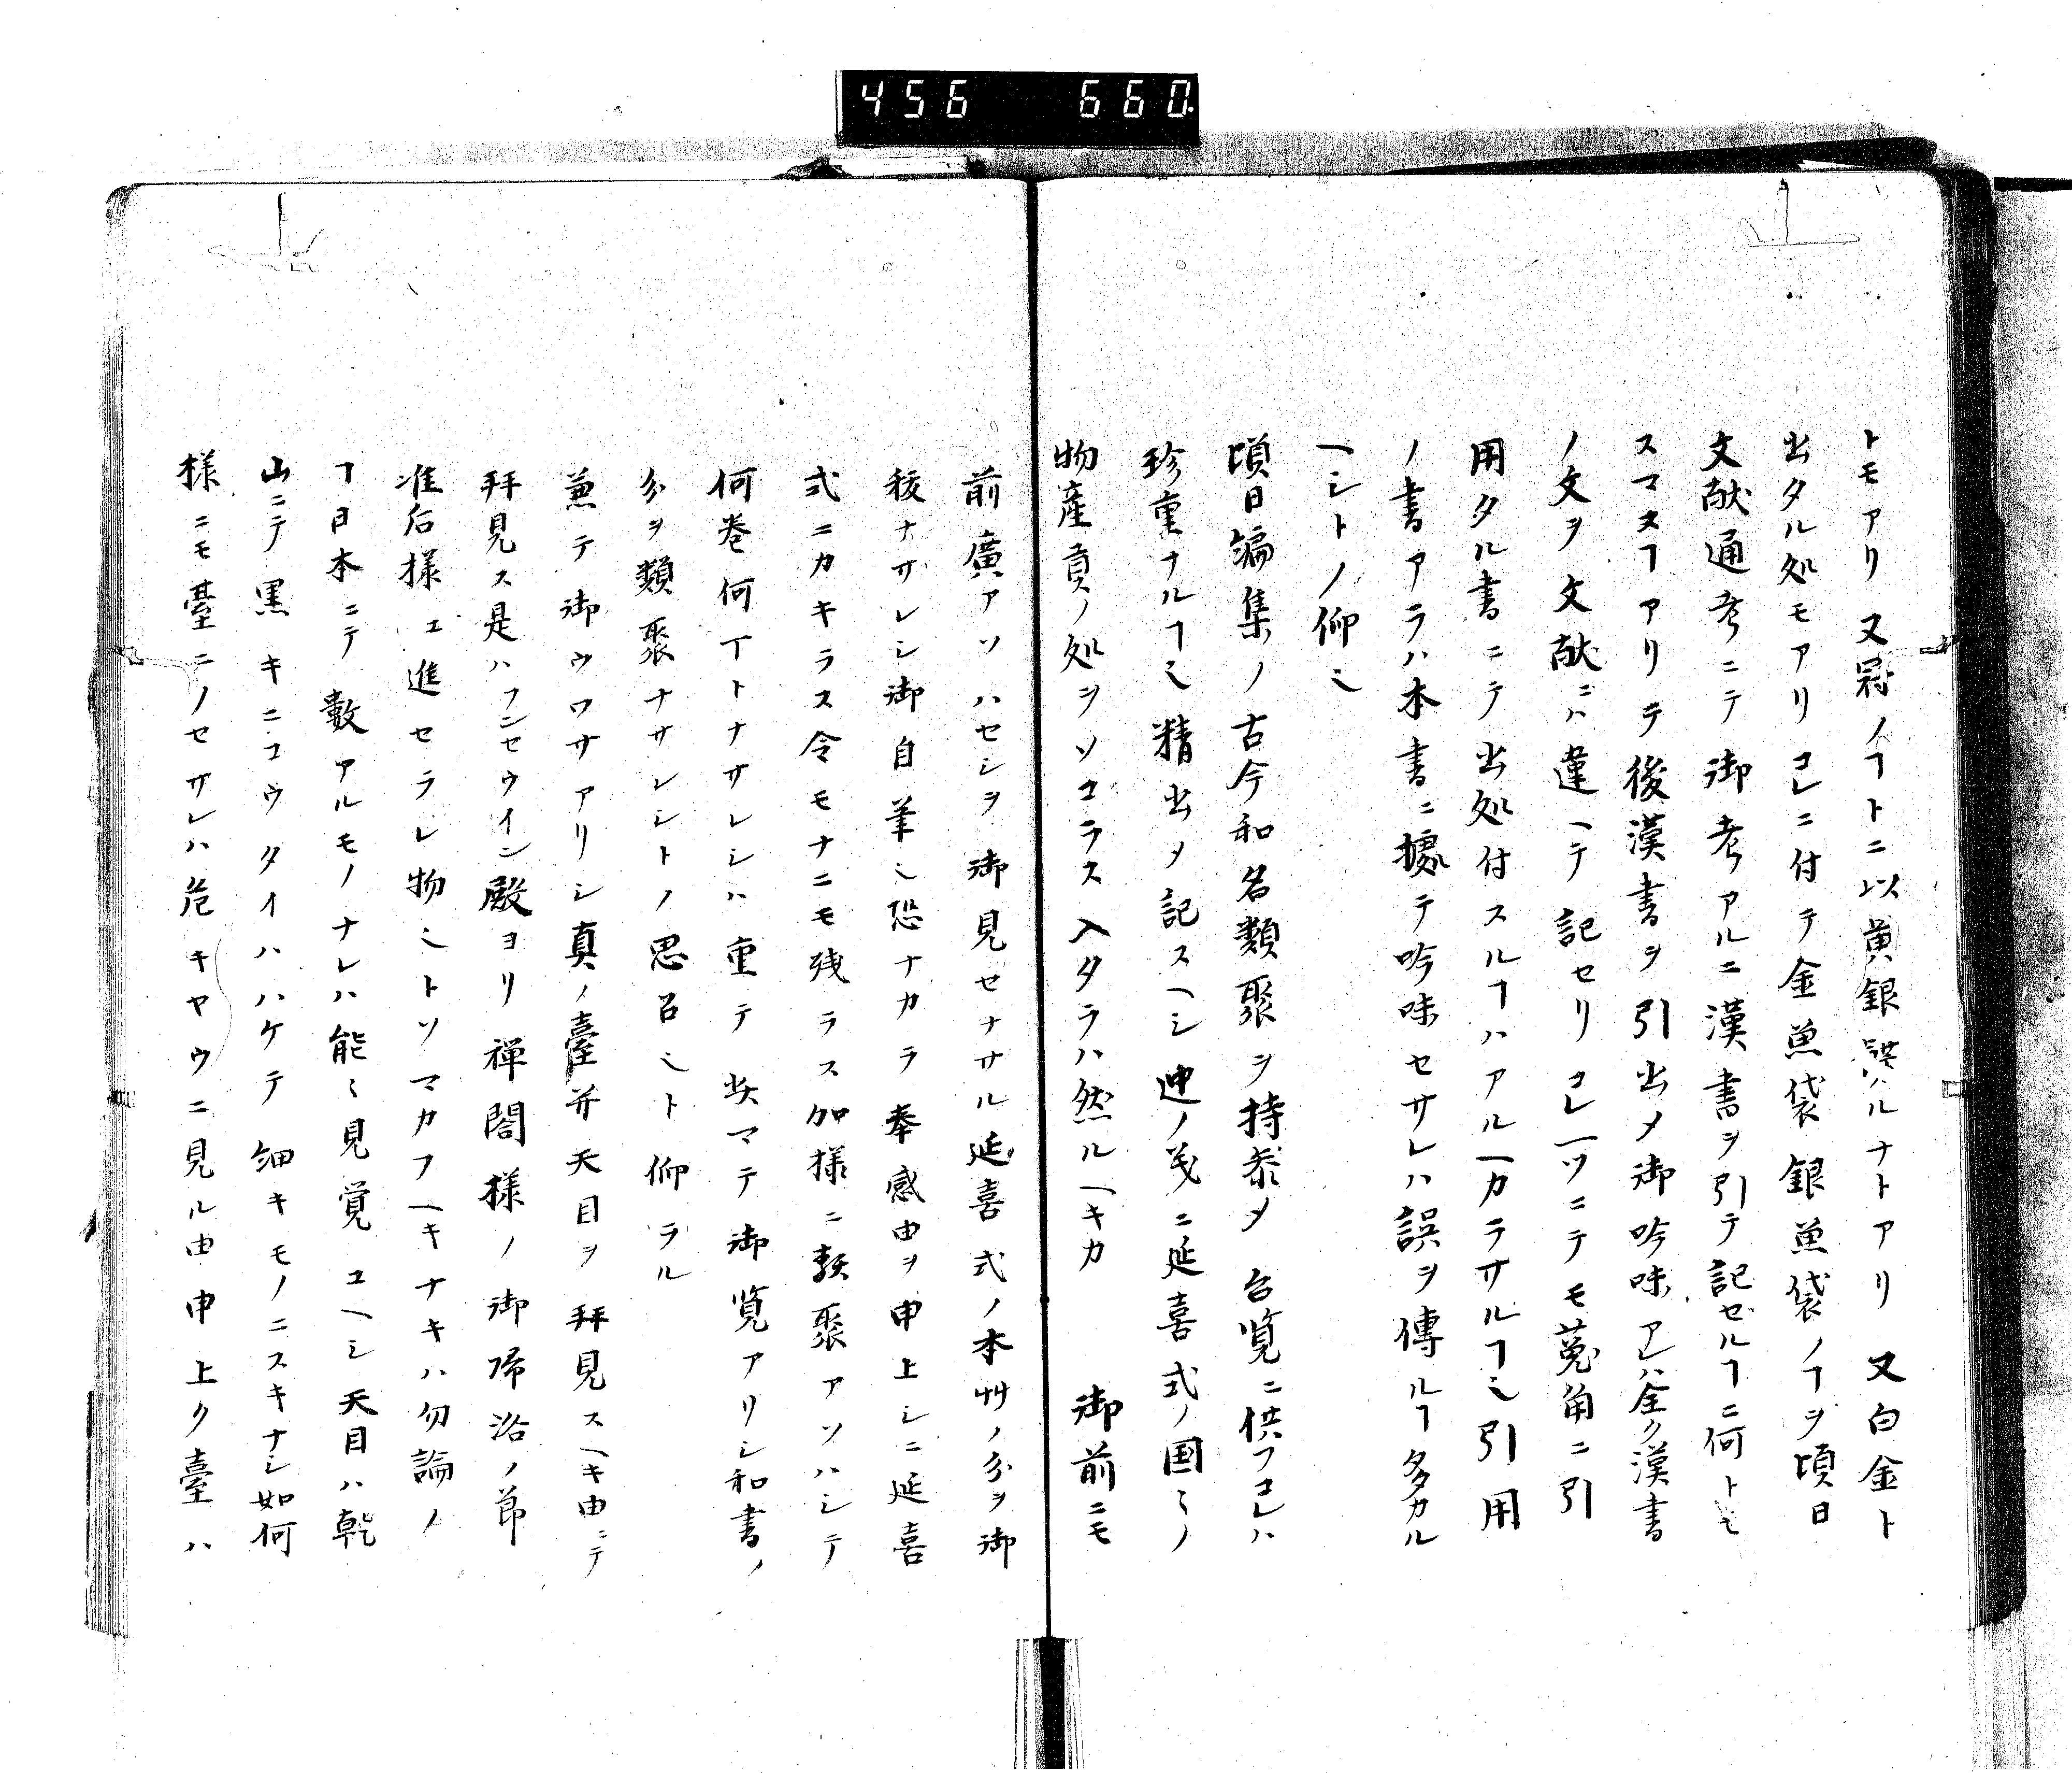 456 660
トモアリ又冠ノヿトニ以黄銀ルナトアリ又白金ト
出タル処モアリコレニ付テ金魚袋銀魚袋ノヿヲ頃日
文献通考ニテ御考アルニ漢書ヲ引テ記セルヿニ何トモ
スマヌヿアリテ後漢書ヲ引出メ御吟味アレハ全ク漢書
ノ文ヲ文献ニハ違ヘテ記セリコレ一ツニテモ菟角ニ引
用タル書ニテ出処付スルヿハアルヘカラサルヿ也引用
ノ書アラハ本書ニ據テ吟味セサレハ誤ヲ傳ルヿ多カル
ヘシトノ仰也
頃日編集ノ古今和名類聚ヲ持参メ台覧ニ供フコレハ
珍重ナルヿ也精出メ記スヘシ迚ノ義ニ延喜式ノ国々ノ
物産貢ノ処ヲソコラス入タラハ然ルヘキカ 御前ニモ
前廣アソハセシヲ御見セナサル延喜式ノ本艸ノ分ヲ御
稜ナサレシ御自筆也恐ナカラ奉感由ヲ申上シニ延喜
式ニカキラス令モナニモ残ラス加様ニ類聚アソハシテ
何巻何丁トナサレシハ重テ奘マテ御覧アリシ和書ノ
分ヲ類聚ナサレシトノ思召也ト仰ラル
兼テ御ウワサアリシ真ノ臺并天目ヲ拝見スヘキ由ニテ
拝見ス是ハフンセウイン殿ヨリ禅閤様ノ御帰洛ノ節
准后様エ進セラレ物也トソマカフヘキナキハ勿論ノ
ヿ日本ニテ數アルモノナレハ能々見覚ユヘシ天目ハ乾
山ニテ黒キニコウタイハハケテ細キモノニスキナシ如何
様ニモ臺ニノセサレハ危キヤウニ見ル由申上ク臺ハ